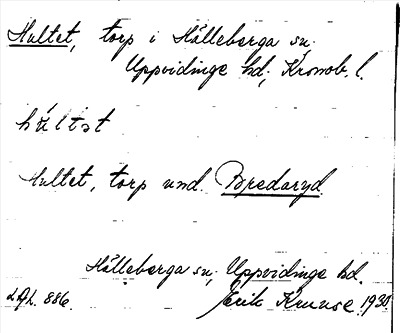 Hultet, torp i Hälleberga sn;
Uppvidinge hd; Kronob. l.
húltet
Hultet, torp und. Bredaryd.
Hälleberga sn, Uppvidinge hd.
L.G.L. 886. Erik Kruuse 1930